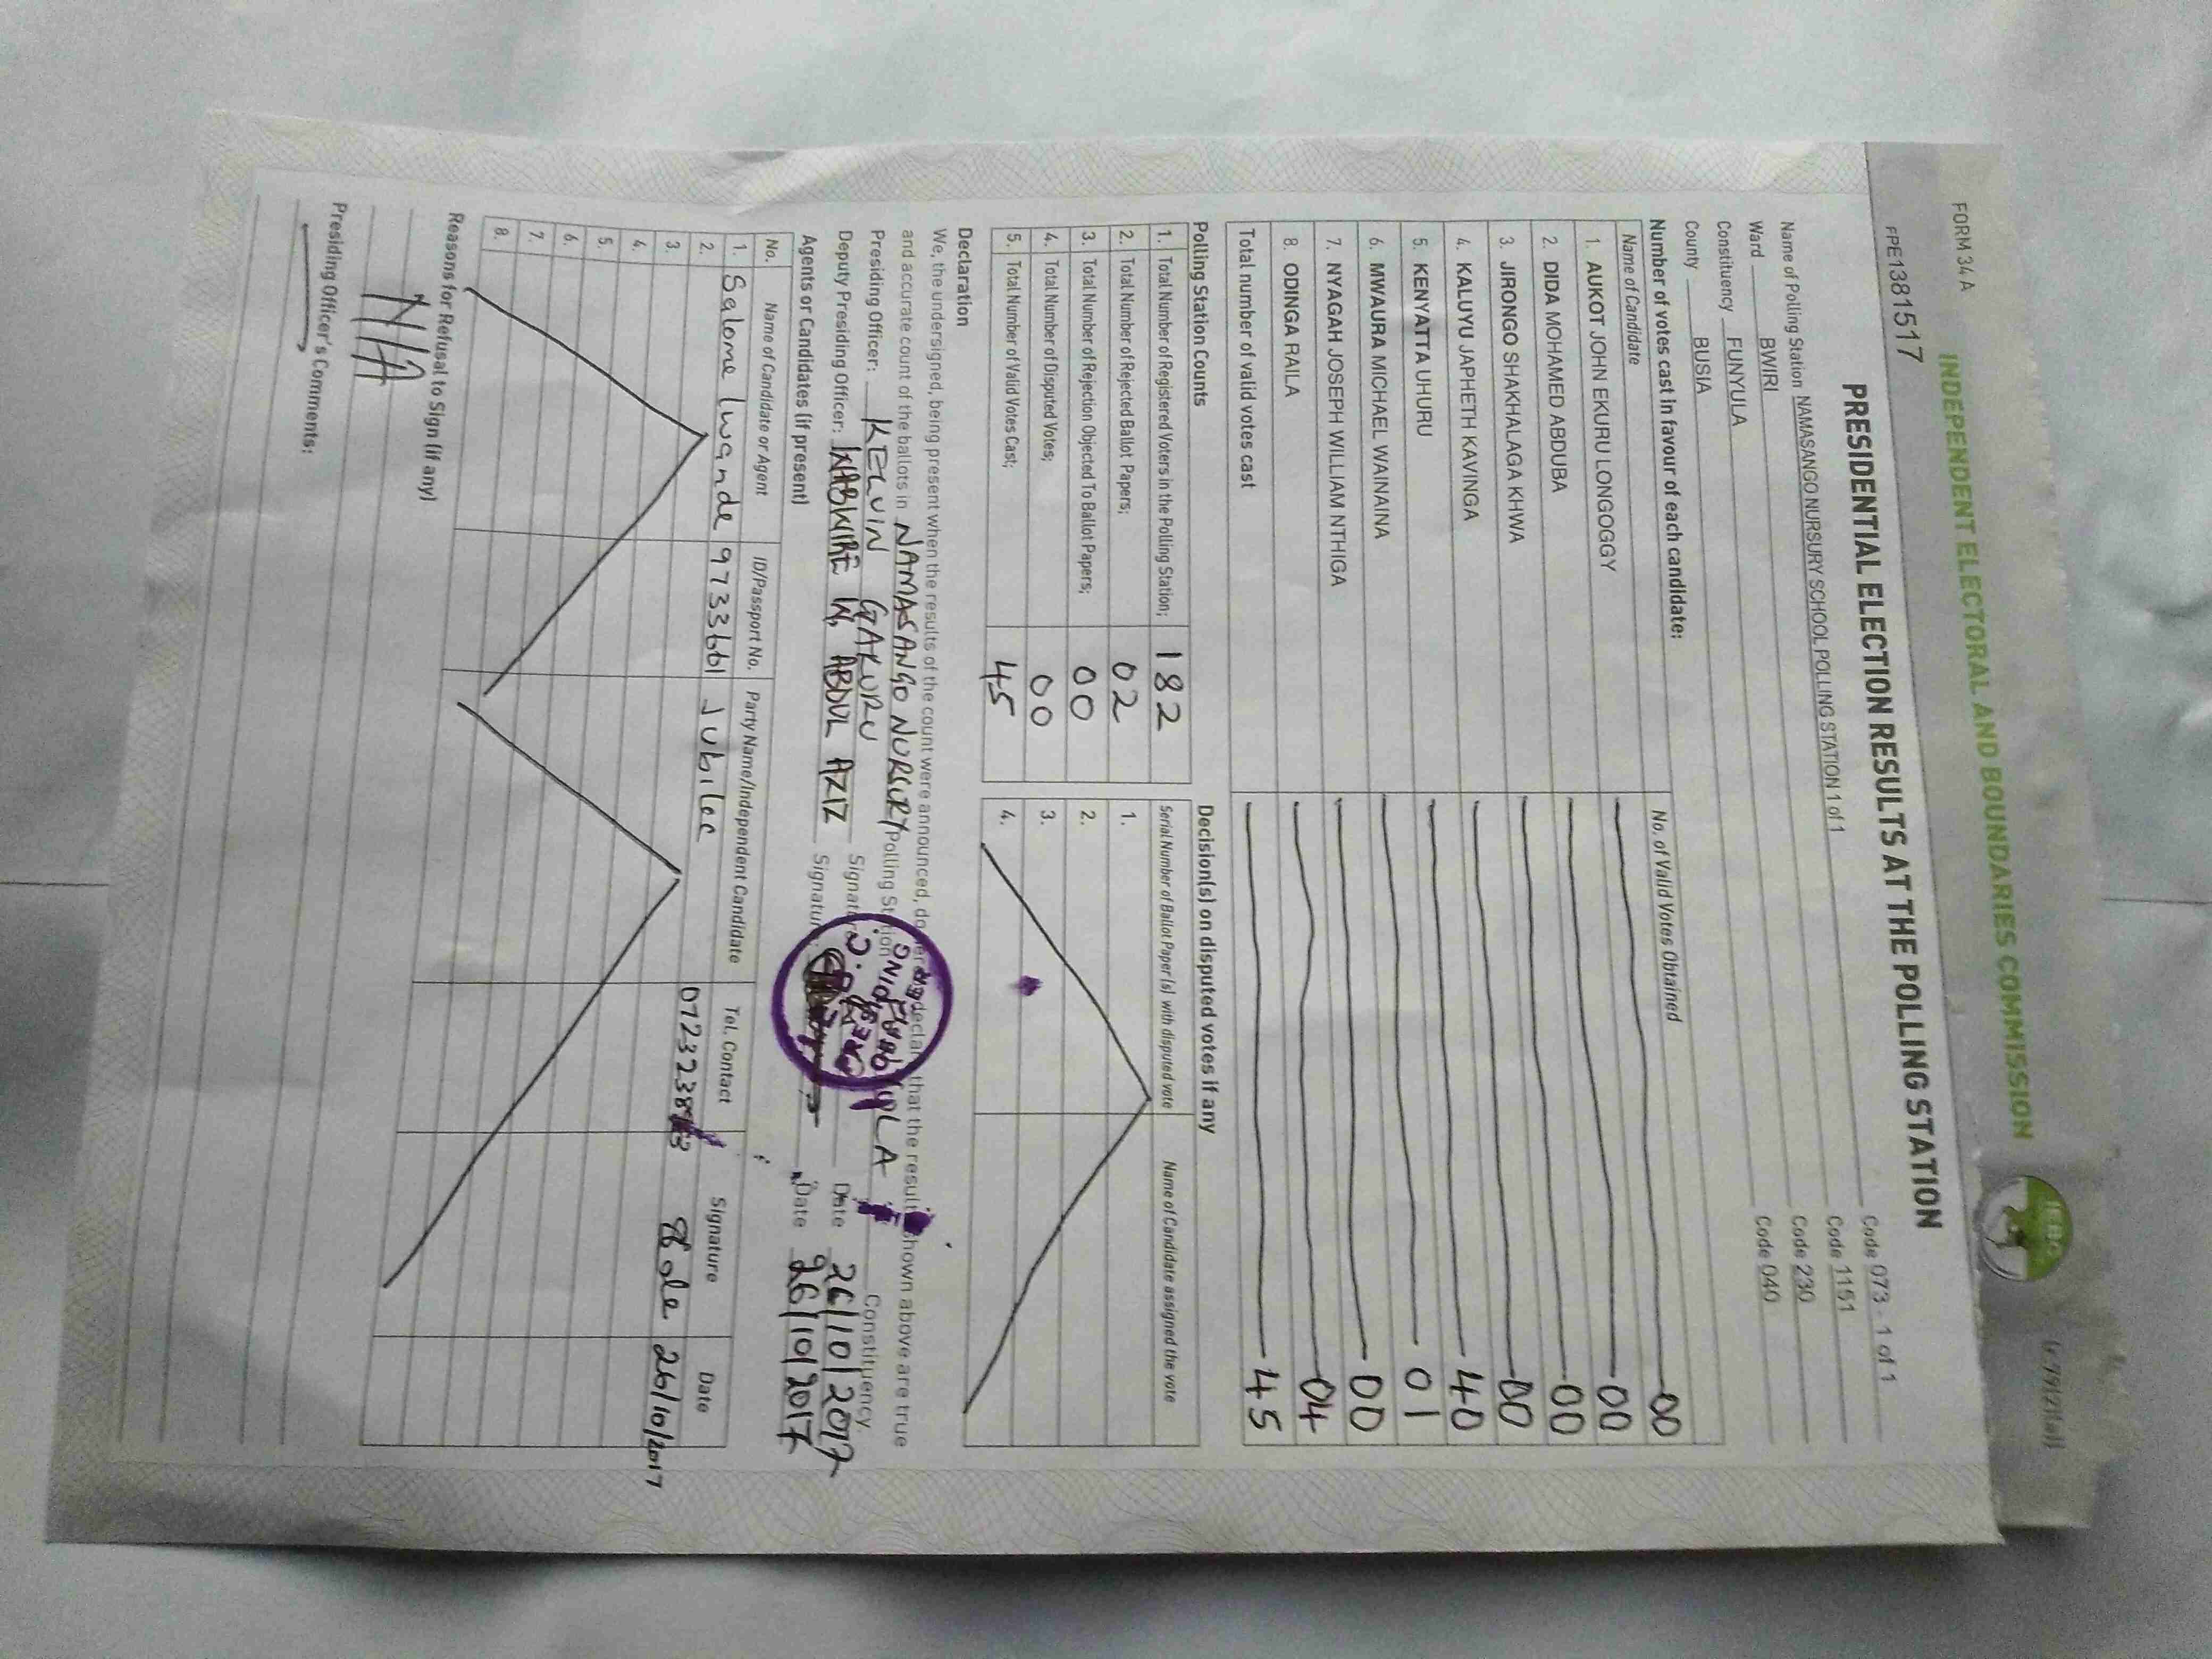 FORM 34A
INDEPENDENT ELECTORAL AND BOUNDARIES COMMISSION
IEBC
FPE1381517
PRESIDENTIAL ELECTION RESULTS AT THE POLLING STATION
Name of Polling Station NAMASANGO NURSURY SCHOOL POLLING STATION 1 of 1 Code 073 - 1 of 1
Ward BWIRI Code 1151
Constituency FUNYULA Code 230
County BUSIA Code 040
Number of votes cast in favour of each candidate:
Name of Candidate No. of Valid Votes Obtained
1. AUKOT JOHN EKURU LONGOGGY 00
2. DIDA MOHAMED ABDUBA 00
3. JIRONGO SHAKHALAGA KHWA 00
4. KALUYU JAPHETH KAVINGA 00
5. KENYATTA UHURU 40
6. MWAURA MICHAEL WAINAINA 01
7. NYAGAH JOSEPH WILLIAM NTHIGA 00
8. ODINGA RAILA 04
Total number of valid votes cast 45
Polling Station Counts
1. Total Number of Registered Voters in the Polling Station; 182
2. Total Number of Rejected Ballot Papers; 02
3. Total Number of Rejection Objected To Ballot Papers; 00
4. Total Number of Disputed Votes; 00
5. Total Number of Valid Votes Cast; 45
Decision(s) on disputed votes if any
Serial Number of Ballot Paper(s) with disputed vote Name of Candidate assigned the vote
1.
2.
3.
4.
Declaration
We, the undersigned, being present when the results of the count were announced, do declare that the results shown above are true
and accurate count of the ballots in NAMASANGO NURSURY Polling Station Constituency.
Presiding Officer: KELVIN GAKURU Signature Date 26/10/2017
Deputy Presiding Officer: WABWIRE W. ABDUL AZIZ Signature Date 26/10/2017
Agents or Candidates (if present)
No. Name of Candidate or Agent ID/Passport No. Party Name/Independent Candidate Tel. Contact Signature Date
1. Salome Lwande 9733661 Jubilee 26/10/2017
2.
3.
4.
5.
6.
7.
8.
Reasons for Refusal to Sign (if any)
N/A
Presiding Officer's Comments: